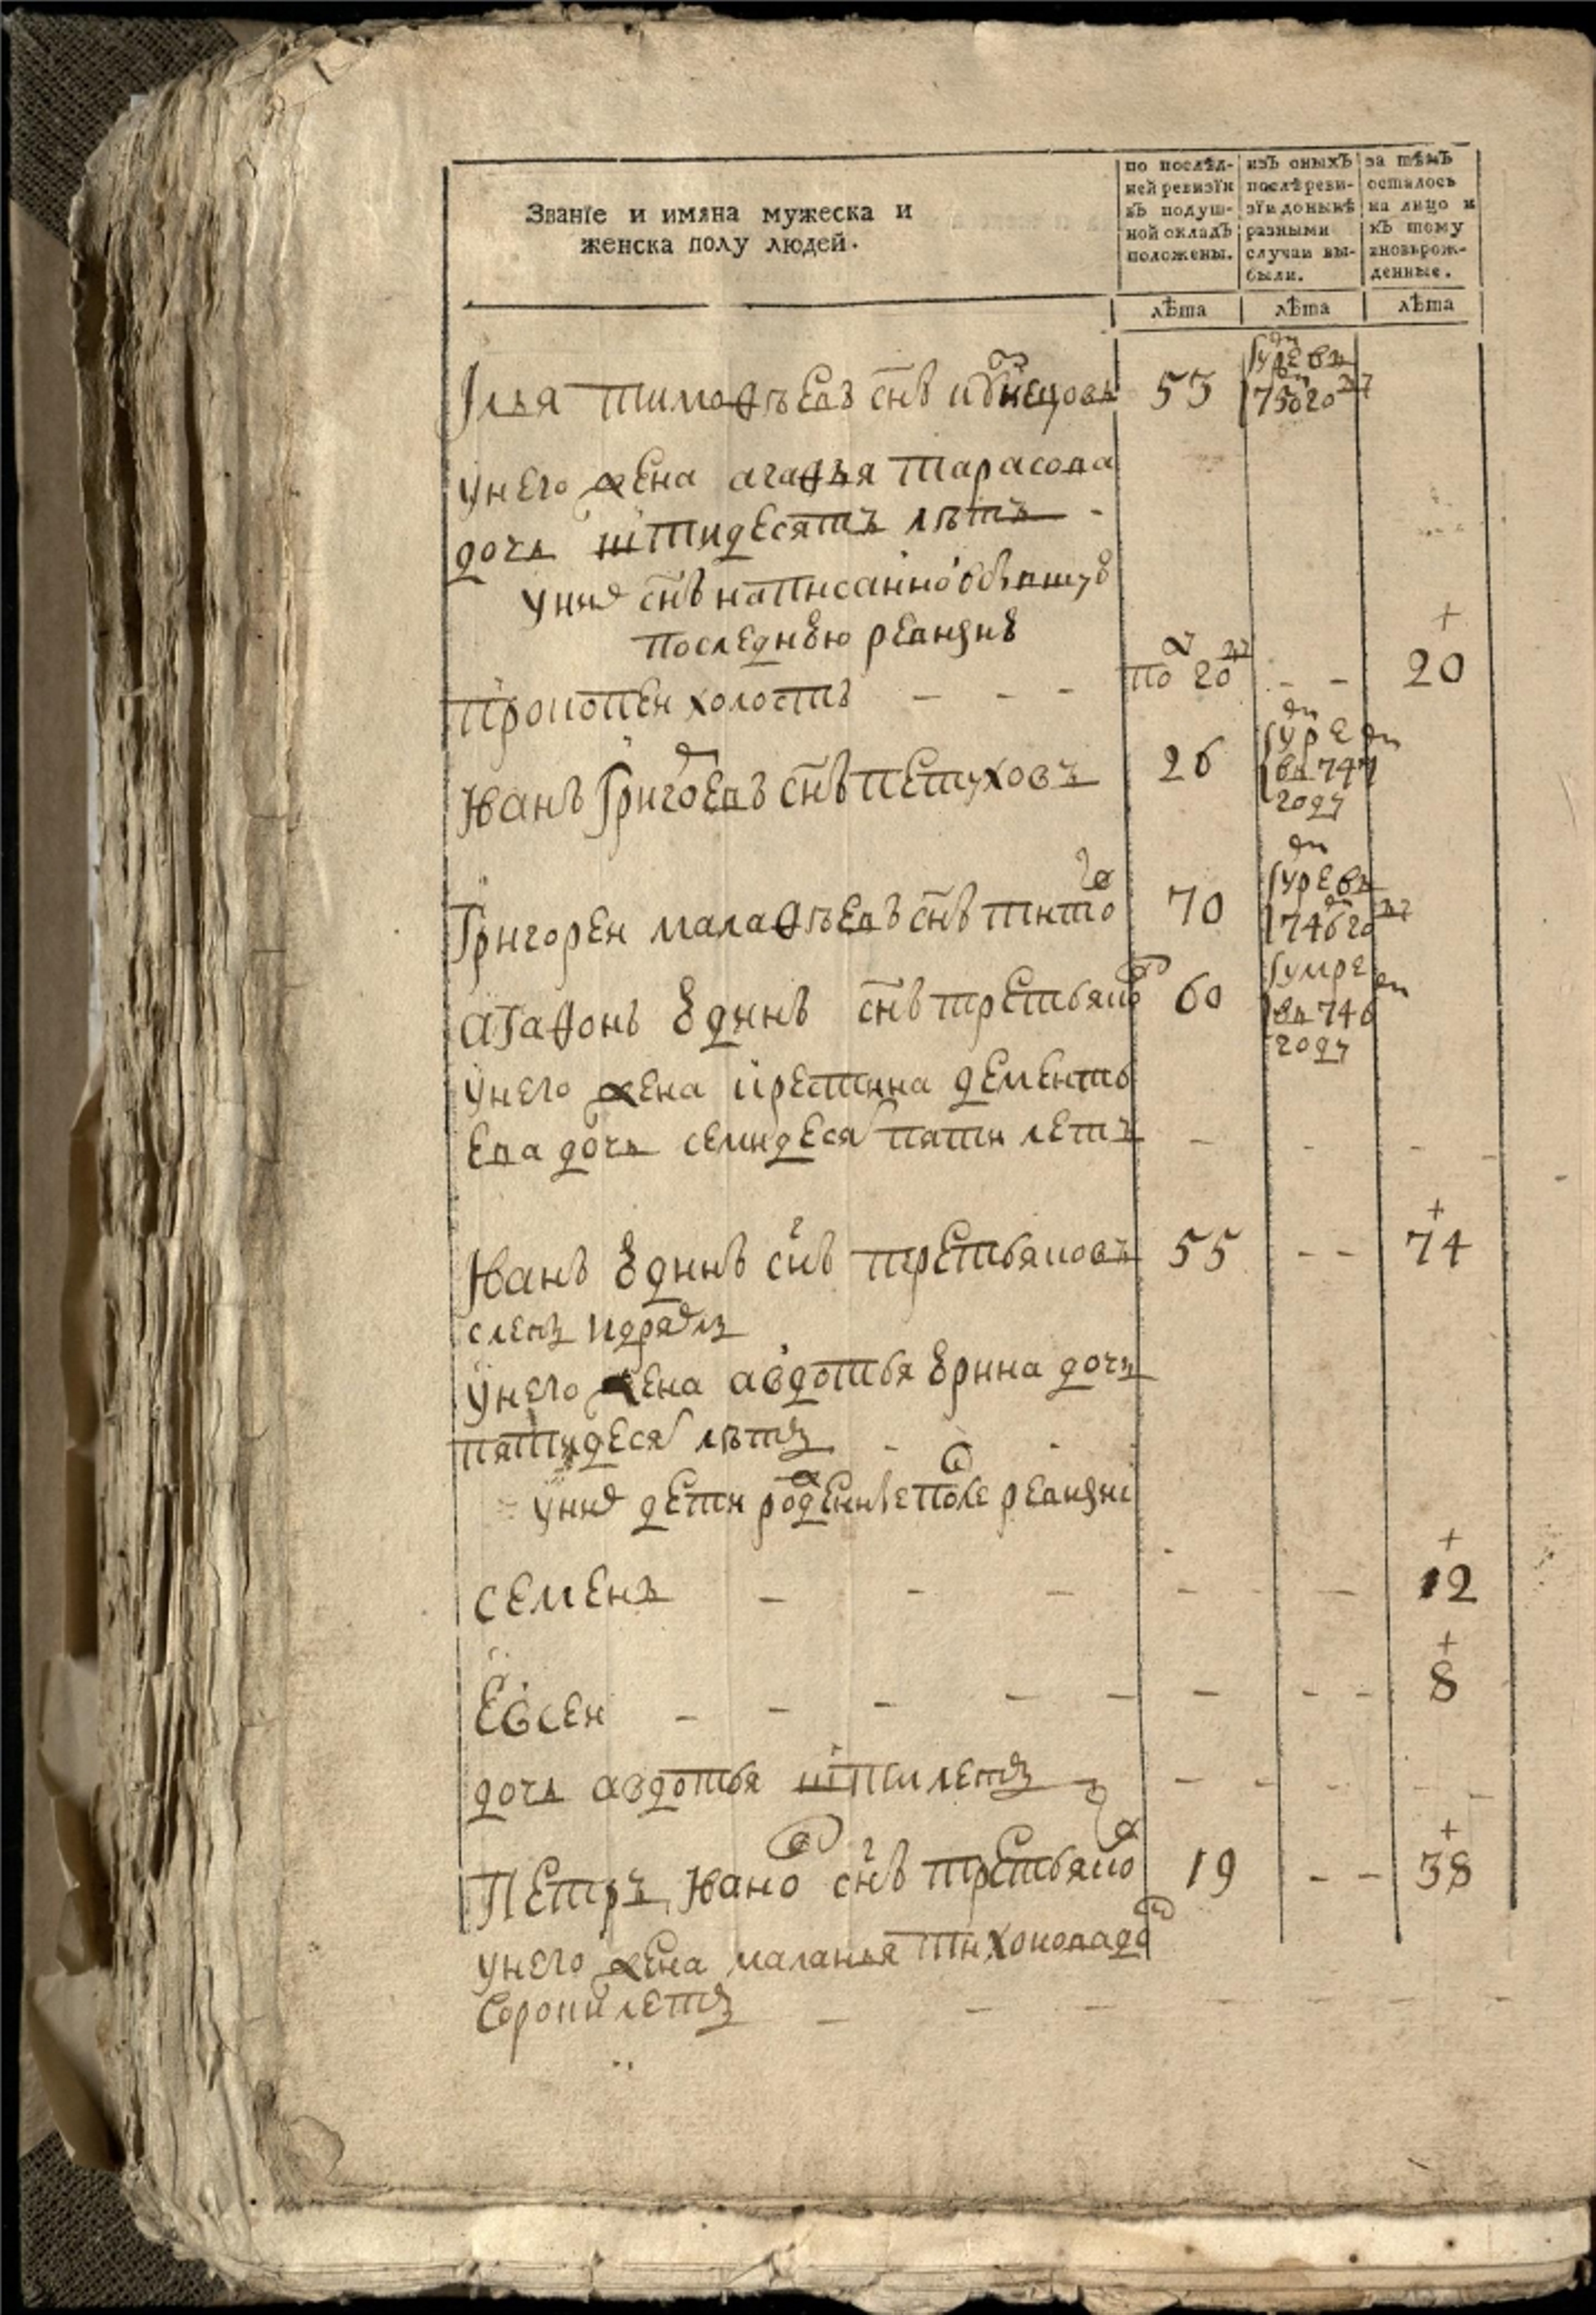 Званїе и имяна мужеска и
женска полу людей.
по послѣд-
ней ревизїи
въ подуш-
ной окладъ
положены.
изъ оныхъ
послѣ реви-
зїи до нынѣ
разными
случаи вы-
были.
за тѣмъ
осталось
на лицо и
къ тому
вновьрож-
денные.
лѣта
лѣта
лѣта
Илья тимоѳѣевъ снъ кузнецовъ 53 умре въ
750 году
у него жена агаѳья тарасова
дочь шти десятъ лѣтъ -
у них снъ написанной в бывшую
последнюю ревизию
прокопеи холостъ - - - по 20 - - + 20
Иванъ Григоревъ снъ петуховъ 26 умре
въ 747
году
Григореи малаѳѣевъ снъ титов 70 умре въ
746 году
агаѳонъ юдинъ снъ третьяков 60 умре
въ 746
году
у него жена крестина дементь
ева дочь семидесят пяти летъ - - -
Иванъ юдинъ снъ третьяковъ 55 - - + 74
слепъ и дряхлъ
у него жена авдотья юрина дочь
пятидесят лѣтъ - -
у них дети рожденные после ревизи
семенъ - - - - - + 12
Евсеи - - - - - - - - + 8
дочь авдотья шти летъ - - - -
Петръ Иванов снъ третьяков 19 - - + 38
у него жена маланья тихонова до
Сорокъ летъ - - - - - - -